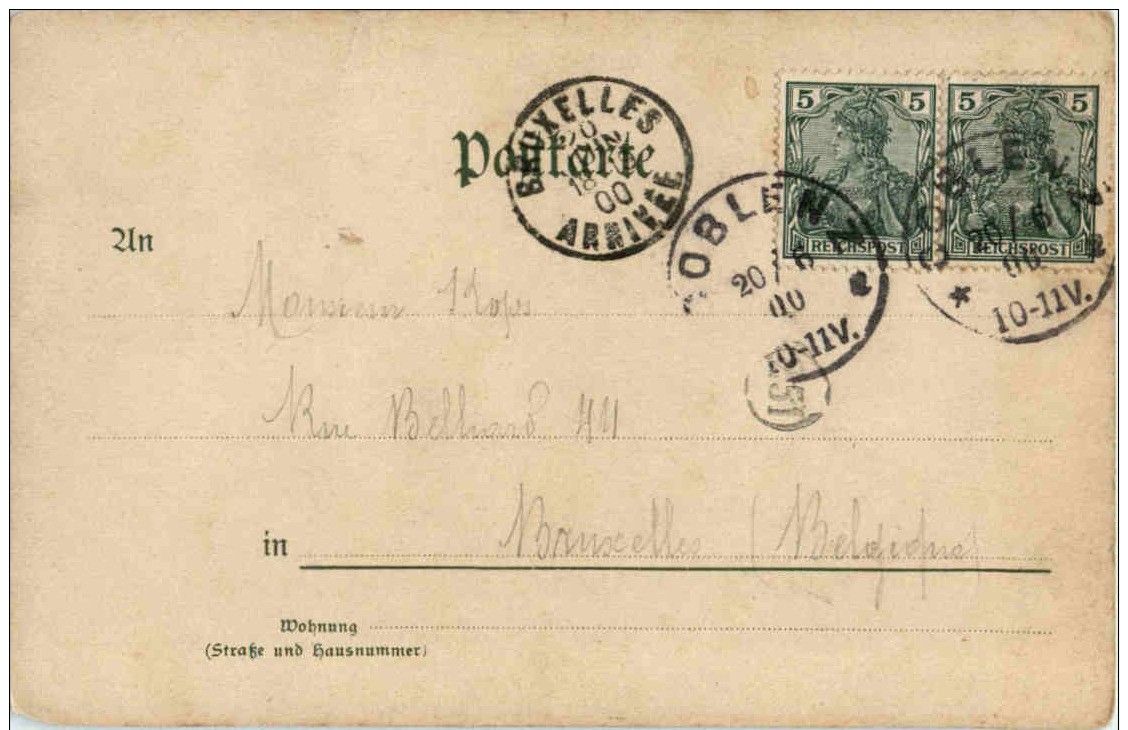 5 5 5 5
REICHSPOST REICHSPOST
BRUXELLES
20
JUIN
18
00
ARRIVÉE
Postkarte
COBLENZ
20/6
00
10-11V.
COBLENZ
20/6
00
*
10-11V.
An
Monsieur Kops
Rue Belliard 44
in Bruxelles (Belgique)
Wohnung
(Straße und Hausnummer)
51